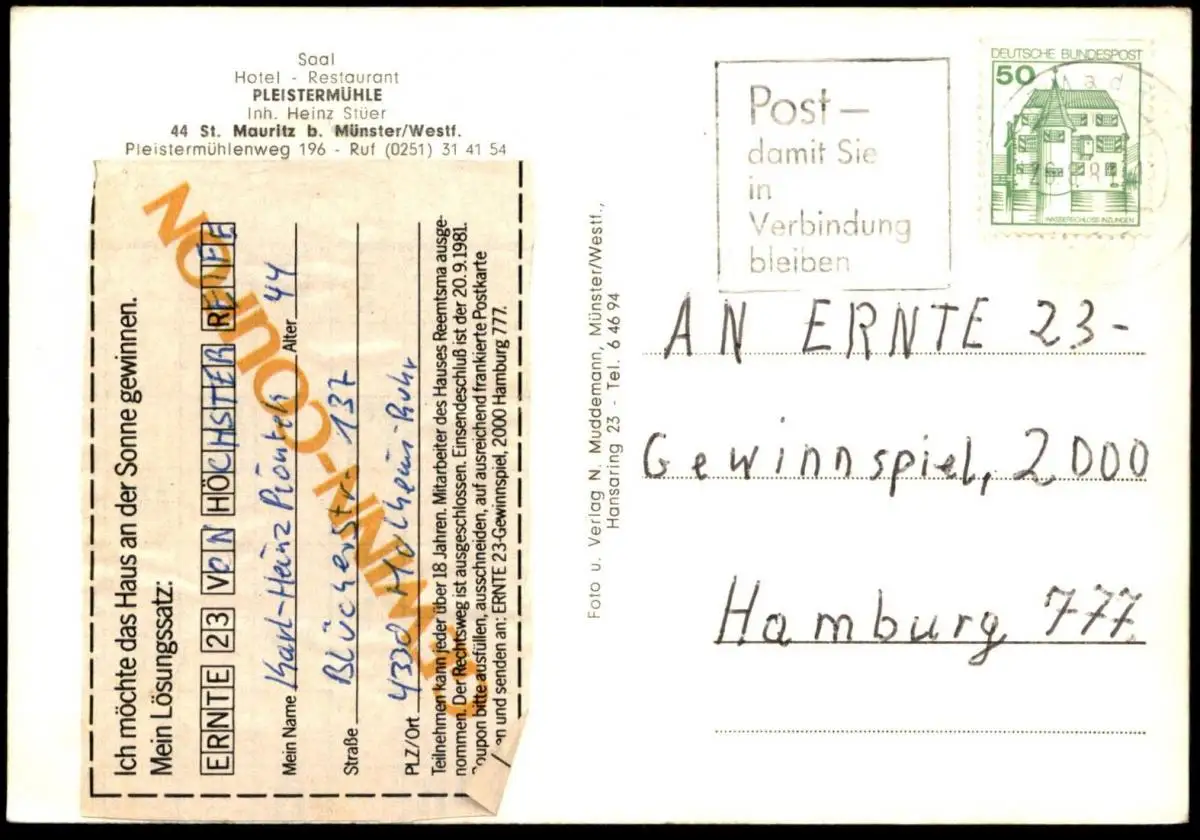 Saal
Hotel - Restaurant
PLEISTERMÜHLE
Inh. Heinz Stüer
44 St. Mauritz b. Münster/Westf.
Pleistermühlenweg 196 - Ruf (0251) 31 41 54
GEWINN-COUPON
Ich möchte das Haus an der Sonne gewinnen.
Mein Lösungssatz:
ERNTE 23 VON HÖCHSTER REIFE
Mein Name Karl-Heinz Piontek Alter 44
Straße Blücherstr. 137
PLZ/Ort 4330 Mülheim-Ruhr
Teilnehmen kann jeder über 18 Jahren. Mitarbeiter des Hauses Reemtsma ausge-
nommen. Der Rechtsweg ist ausgeschlossen. Einsendeschluß ist der 20.9.1981.
Coupon bitte ausfüllen, ausschneiden, auf ausreichend frankierte Postkarte
en und senden an: ERNTE 23-Gewinnspiel, 2000 Hamburg 777.
Foto u. Verlag N. Muddemann, Münster/Westf.,
Hansaring 23 - Tel. 6 46 94
Post –
damit Sie
in
Verbindung
bleiben
DEUTSCHE BUNDESPOST
50
WASSERSCHLOSS INZLINGEN
AN ERNTE 23-
Gewinnspiel, 2000
Hamburg 777